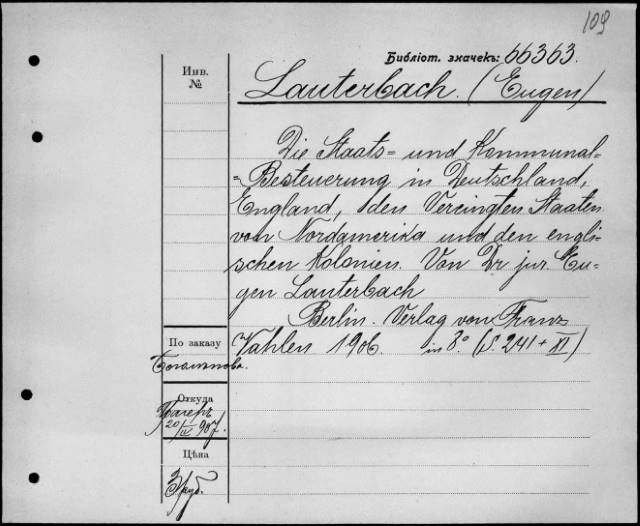 109
Библіот. значекъ: 66363.
Инв.
№
Lauterbach. (Eugen)
Die Staats= und Kommunal=
=Besteuerung in Deutschland,
England, den Vereingten Staaten
von Nordamerika und den engli-
schen Kolonien. Von Dr jur. Eu-
gen Lauterbach
Berlin. Verlag von Franz
Vahlen 1906. in 8° (S. 241 + XI)
По заказу
Откуда
20/IV 907.
Цѣна
3 руб.